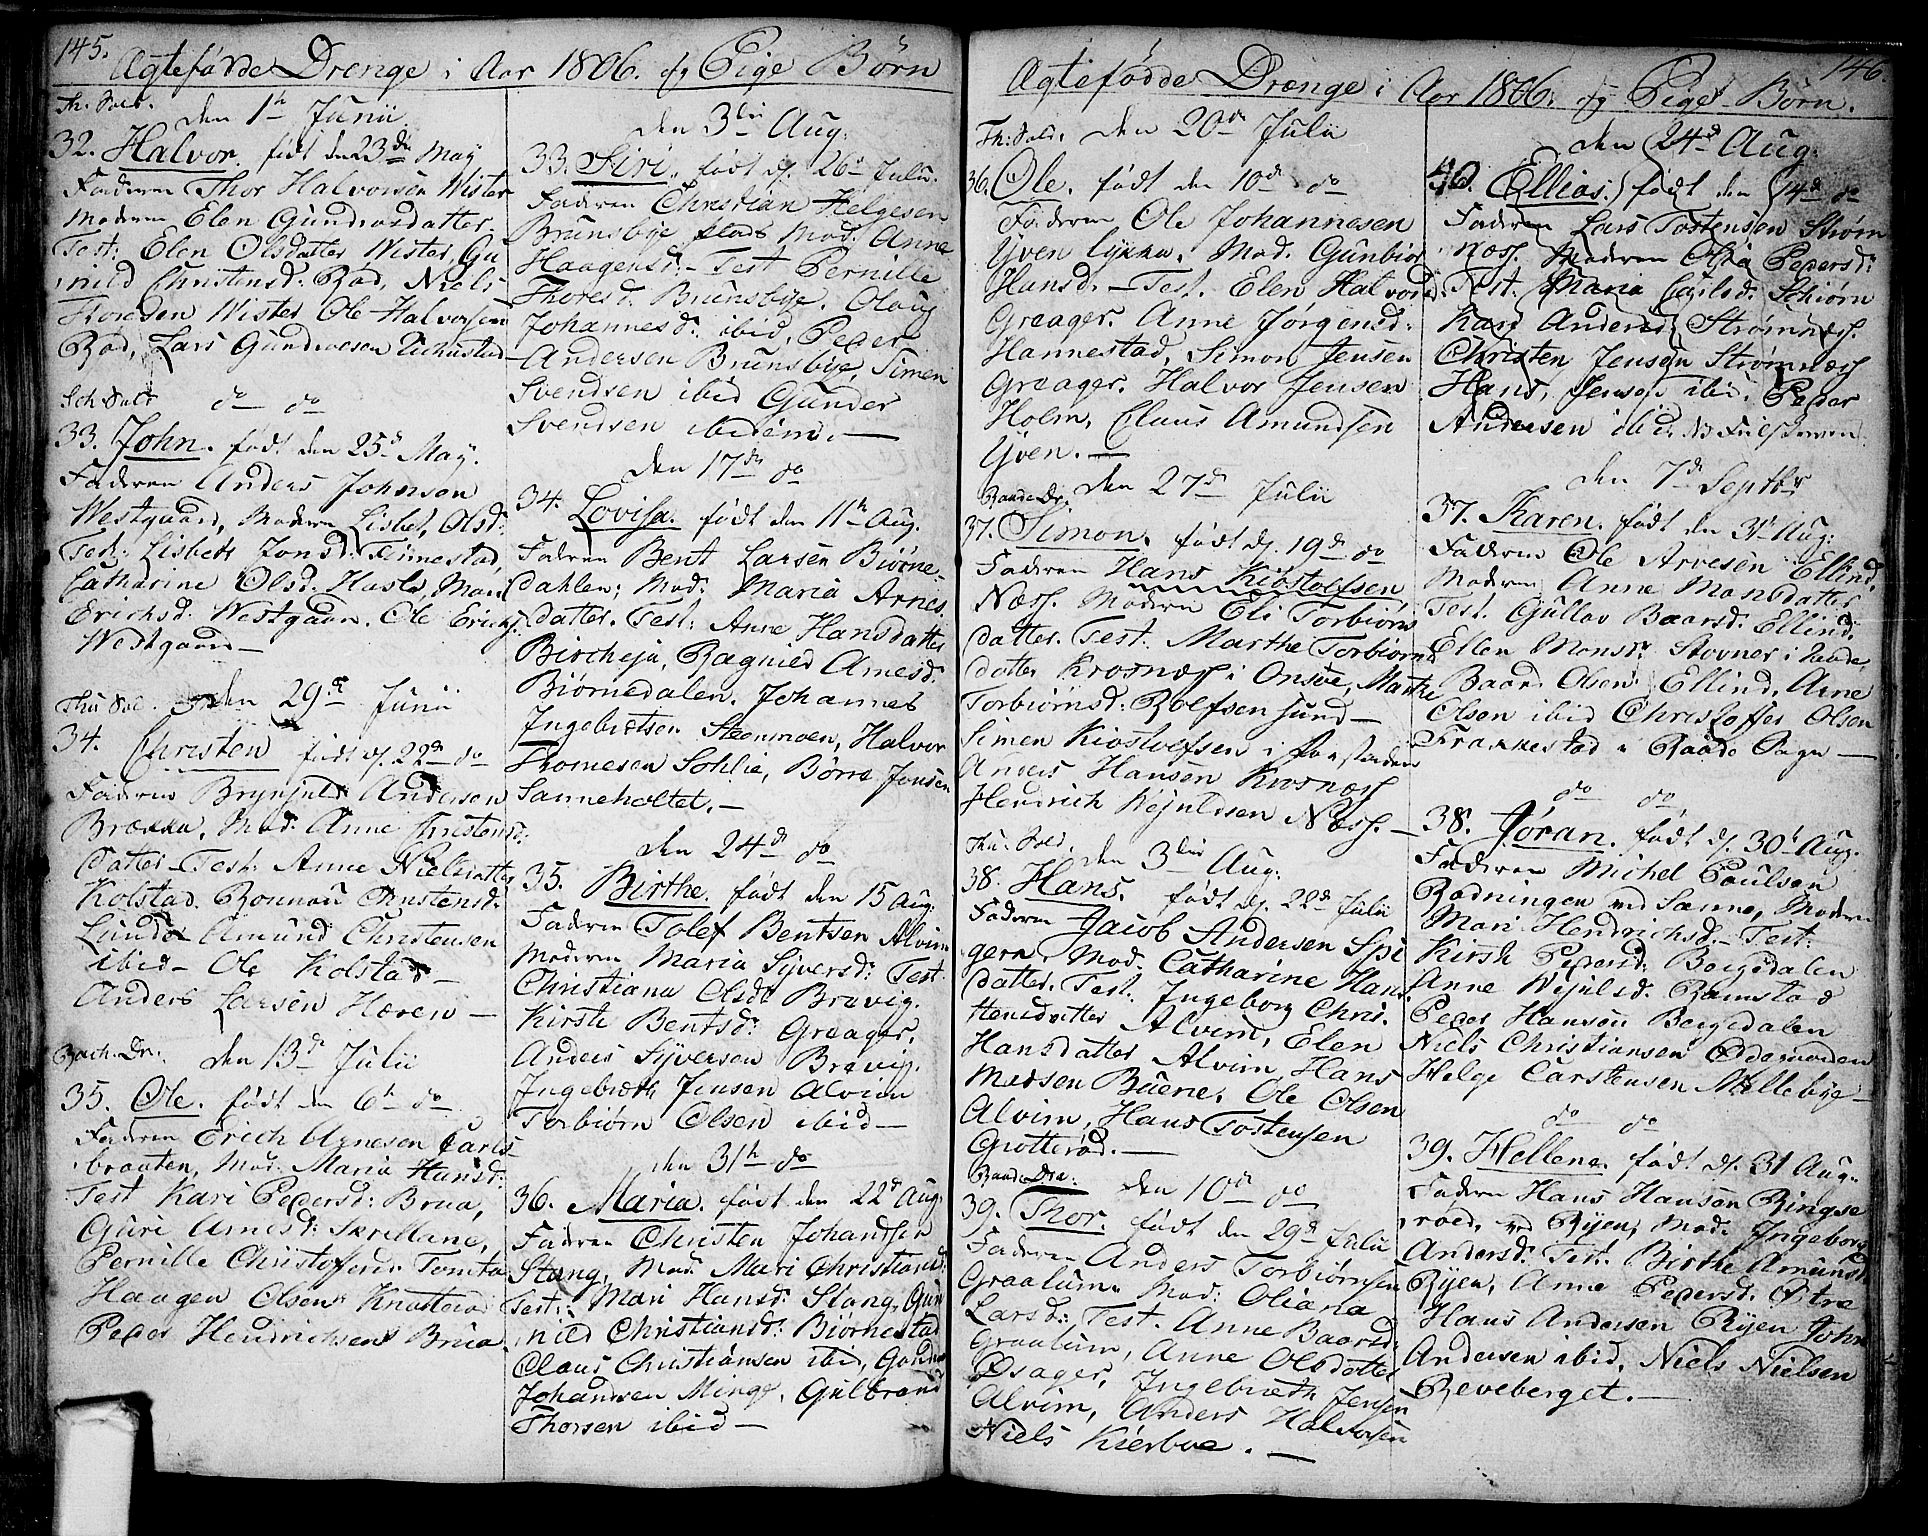 145.
Ægtefødde Drenge i Aar 1806. og Pige Børn
Th: Sold.
den 1te Junii
32. Halvor. født den 23de May
Faderen Thor Halvorsen Wister
Moderen Elen Gundersdatter.
Test: Elen Olsdatter Wister, Gu
nild Christensd: Rød, Niels
Thoresen Wister Ole Halvorsen
Rød, Lars Gundersen
do do
33. John. født den 25d May.
Faderen Anders Johnsen
Westgaard, Moderen Lisbet, Olsd:
Test: Lisbeth Jonsd: Tinnestad,
Catharine Olsd. Hasle, Mari
Erichsd: Westgaard. Ole Erichs:
Westgaard—
den 29de Junii
34. Christen født d. 22de do
Faderen Brynjuld Andersen
Brække, Mod: Anne Christens
datter— Test: Anne Nielsdatter
Kolstad. Ronnau Christensd:
Lunde Amund Christensen
ibid— Ole Kolstad—
Anders Larsen Hæren—
den 13de Julii
35. Ole. født den 6te do
Faderen Erich Arnesen Carls
braaten, Mod: Maria Hansd:
Test Kari Pedersd: Brua,
Guri Arnesd: Skrellane,
Pernille Christofersd: Tomta
Haagen Olsen Knatterød
Peder Hendrichsen Brua.
den 3die Aug:
33. Siri. født d. 26de Julii.
Faderen Christian Helgesen
Brunsbye Mod: Anne
Haagensd:— Test Pernille
Thoresd: Brunsbye. Olaug
Johannesd: ibid, Peder
Andersen Brunsbye, Simen
Svendsen ibid Gunder
Svendsen ibidem.—
den 17de do
34. Lovisa. født den 11te Aug.
Faderen Bent Larsen Biørne
dahlen; Mod: Maria Arnes
datter. Test: Anne Hansdatter
Bircheja, Ragnild Arnesd:
Biørnedalen. Johannes
Ingebretsen Steenmoen, Halvor
Thomesen Sohlie, Børre Jensen
Sanneholtet.—
den 24de do
35. Birthe. født den 15 Aug.
Faderen Tolef Bentsen Alvim
Moderen Maria Syversd: Test:
Christiana Olsdr Brevig.
Kirsti Bentsd: Greager.
Anders Syversen Brevig.
Ingebreth Jensen Alvim
Torbiørn Olsen ibid—
den 31te do
36. Maria. født den 22de Aug:
Faderen Christen Johansen
Stang, Mod: Mari Christiansd:
Test: Mari Hansd: Stang, Gun
nild Christiansd: Biørnestad
Claus Christiansen ibid, Gunder
Johannesen Minge, Gulbrand
Thorsen ibid—
146
Ægtefødde Drenge i Aar 1806. og Pige Børn.
Th: Sold. den 20de Julii
36. Ole. født den 10de do
Faderen Ole Johannesen
Yven Lykke. Mod: Gunbiør
Hansd.— Test. Elen Halvorsd:
Greager. Anne Jørgensd:
Hannestad, Simon Jensen
Greager. Halvor Jensen
Holm, Claus Amundsen
Yven.—
den 27de Julii
37. Simon. født d. 19de do
Faderen Hans Kiostolfsen
Næss. Moderen Eli Torbiøns
datter. Test. Marthe Torbiørns
datter Krosnæss i Onsøe, Marthe
Torbiørnsd: Rolfsen Sund—
Simen Kiostolfsen i
Anders Hansen Krosnæss
Hendrich Wejulssen Næss.—
Thu: Sold. den 3die Aug:
38. Hans. født d. 22de Julii
Faderen Jacob Andersen Spi
geren. Mod: Catharine Hans
datter. Test. Ingeborg Chris
tensdatter Alvim, Elen
Hansdatter Alvim, Hans
Madsen Buene. Ole Olsen
Alvim, Hans Tostensen
Grotterød.—
den 10de do
39. Thor. født den 29de Julii
Faderen Anders Torbiørnsen
Graalum. Mod: Oliana
Larsd: Test. Anne Baarsd:
Graalum, Anne Olsdatter
Opsager, Ingebreth Jensen
Alvim, Anders Halvorsen
Niels Kierboe.—
den 24de Aug:
40. Ellias. født den 14de do
Faderen Lars Tostensen Strøm
næss. Moderen Olia Pedersd:
Test. Maria Carlsd: Schiørn
Kari Andersd: Strømnæss.
Christen Jensen Strømnæss
Hans, Jensen ibid. Peder
Andersen ibid.
den 7de Septbr
37. Karen. født den 31te Aug:
Faderen Ole Arvesen Ellind
Moderen Anne Monsdatter
Test. Gullov Baarsd: Ellind,
Ellen Monsdr Stovner i Raade,
Baard Olsen Ellind, Arne
Olsen ibid Christoffer Olsen
Frakkestad i Raade Sogn—
do do
38. Jøran. født d. 30te Aug.
Faderen Michel Poulsen
Rødningen ved Sanne, Moderen
Mari Hendrichsd:— Test:
Kirsti Pedersd: Borgedalen
Anne Wejulsd. Ramstad
Peder Hansen Borgedalen
Niels Christiansen Ødemorden
Helge Carstensen Millebye—
do do
39. Hellene. født d. 31 Aug.
Faderen Hans Hansen Ringse
røed, ved Ryen, Mod: Ingeborg
Andersd: Test. Birthe Amundsd:
Ryen, Anne Pedersd. Østre
Hans Andersen Ryen John
Andersen ibid. Niels Nielsen
Reveberget.—